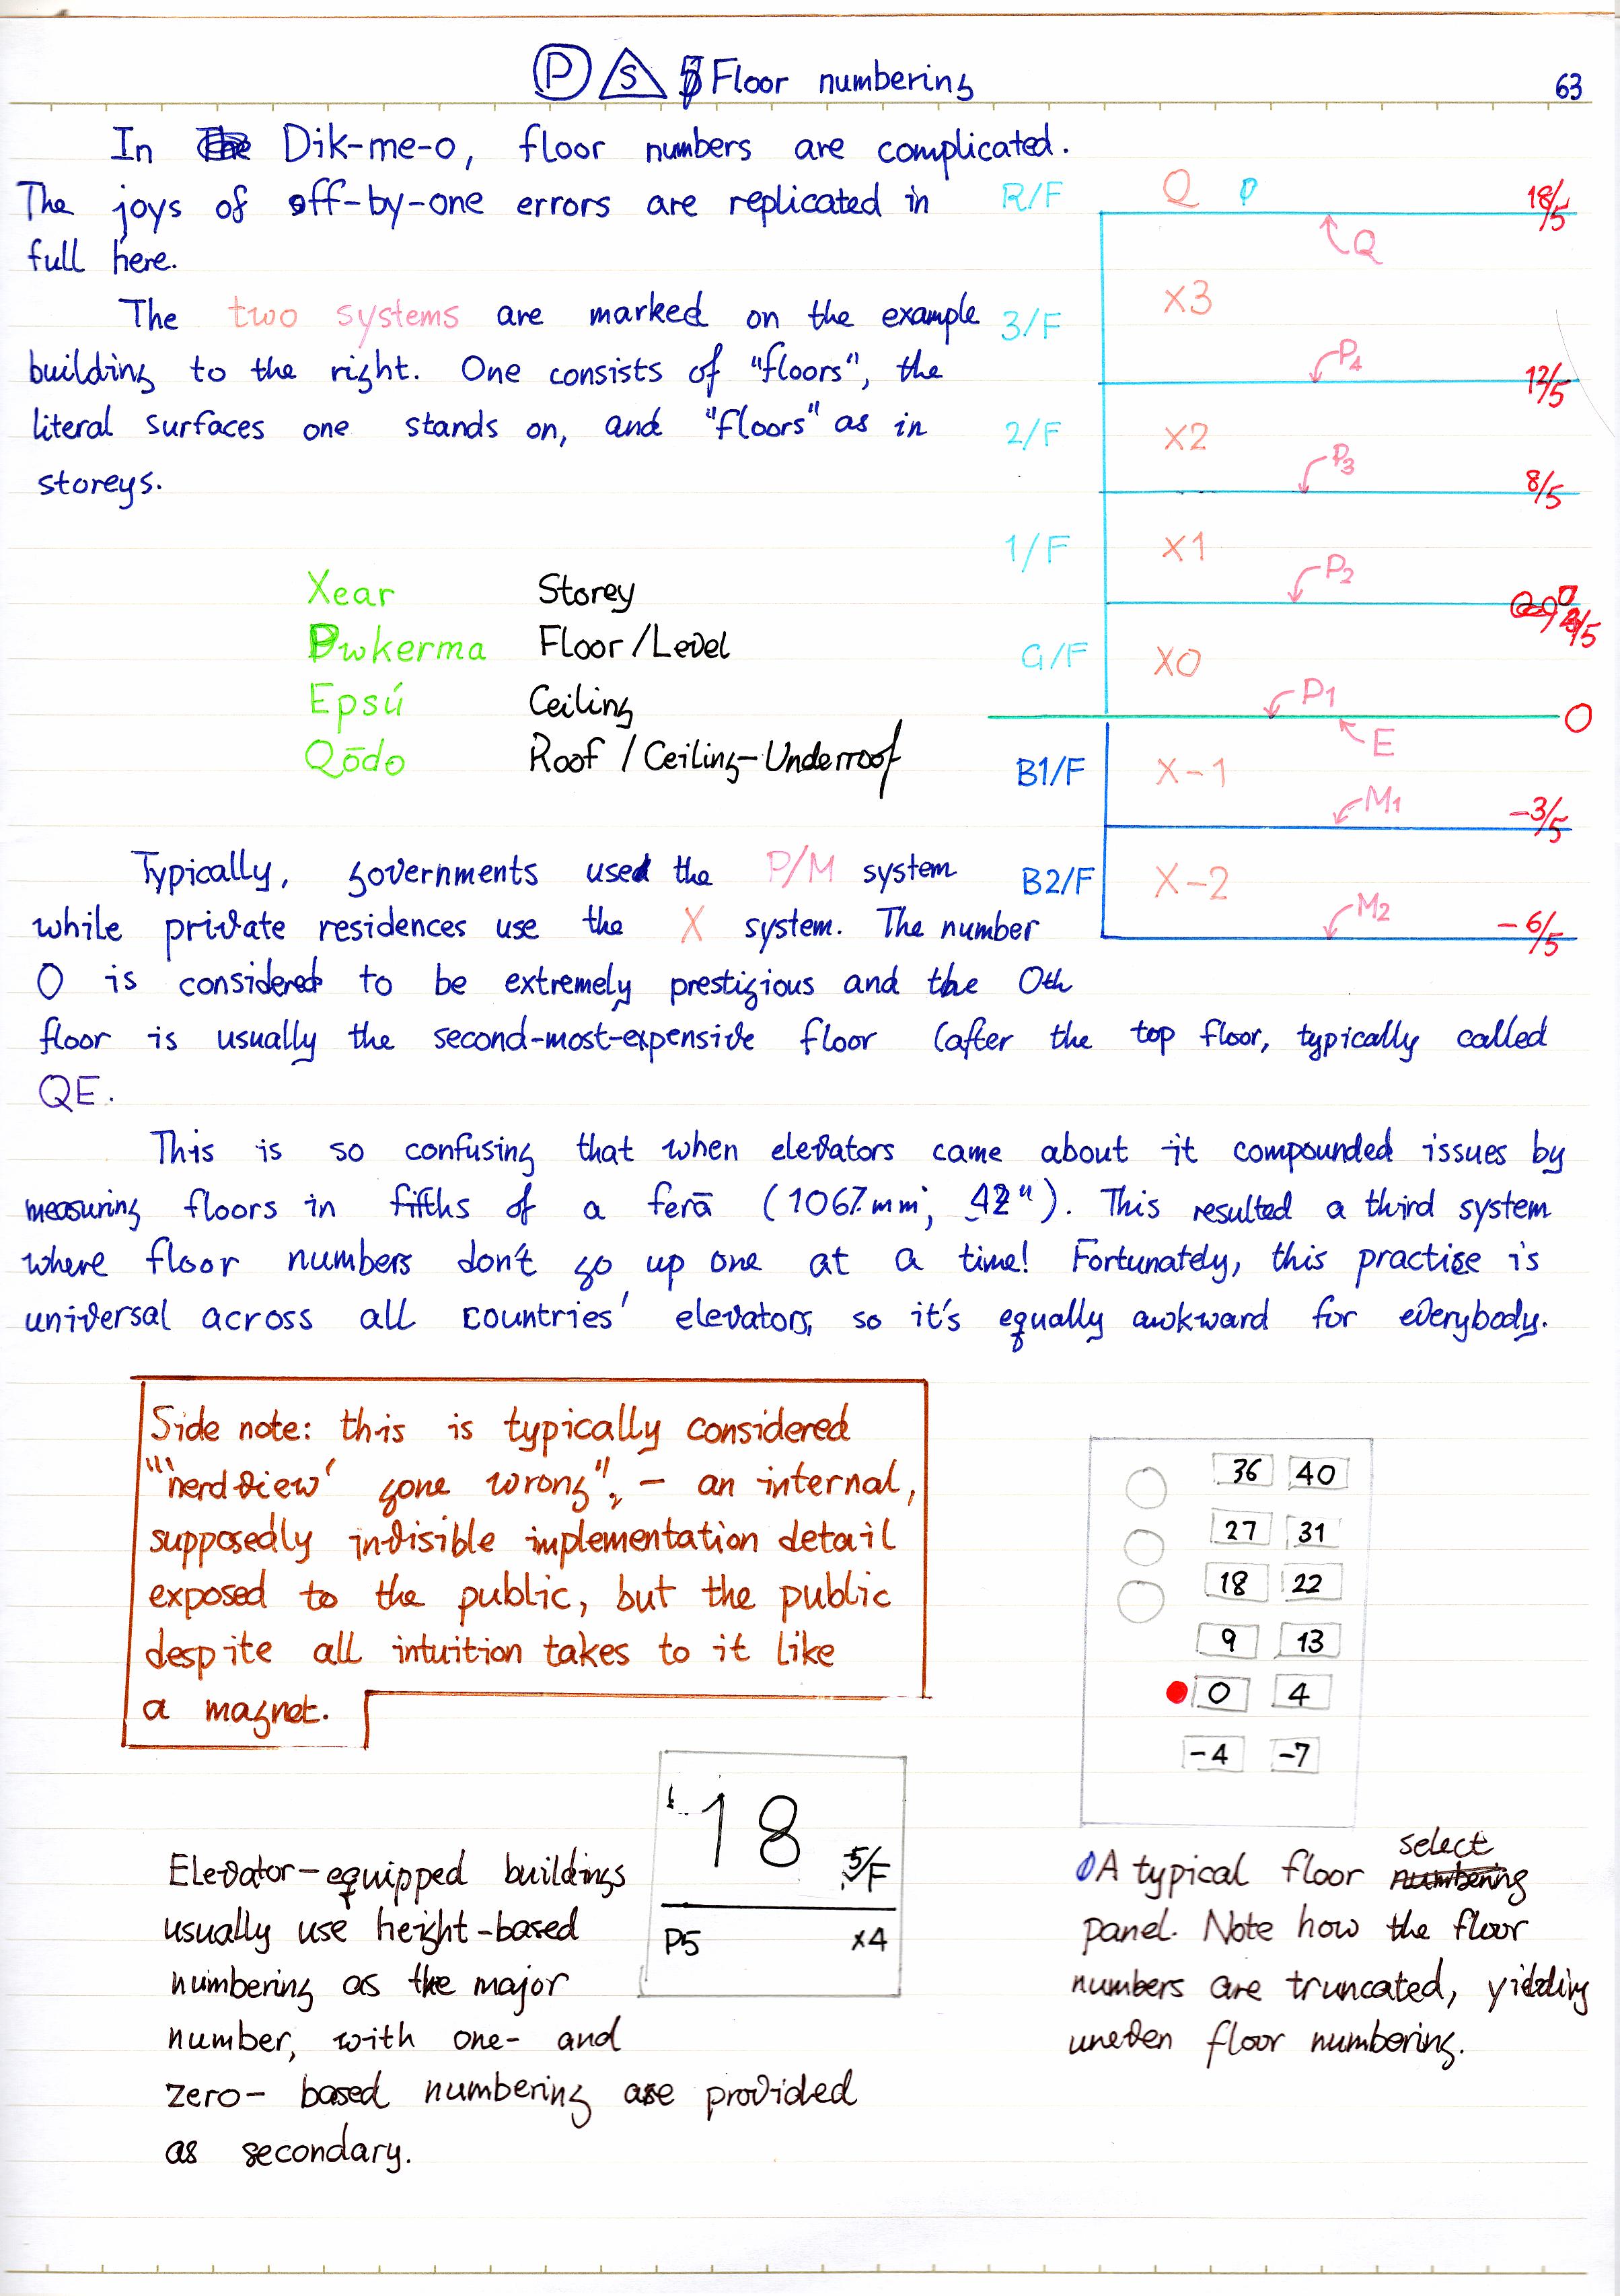 P S Floor numbering
63
In Dik-me-o, floor numbers are complicated.
The joys of off-by-one errors are replicated in
full here.
The two systems are marked on the example
building to the right. One consists of "floors", the
literal surfaces one stands on, and "floors" as in
storeys.
R/F Q 18/5
Q
3/F X3
P4 12/5
2/F X2
P3 8/5
1/F X1
P2
G/F X0
P1 0
E
B1/F X-1
M1 -3/5
B2/F X-2
M2 -6/5
Xear Storey
Pwkerma Floor/Level
Epsú Ceiling
Qōdo Roof / Ceiling-Underroof
Typically, governments used the P/M system
while private residences use the X system. The number
0 is considered to be extremely prestigious and the 0th
floor is usually the second-most-expensive floor (after the top floor, typically called
QE.
This is so confusing that when elevators came about it compounded issues by
measuring floors in fifths of a ferā (1067mm; 42"). This resulted a third system
where floor numbers don't go up one at a time! Fortunately, this practise is
universal across all countries' elevators, so it's equally awkward for everybody.
Side note: this is typically considered
"'nerdview' gone wrong", - an internal,
supposedly invisible implementation detail
exposed to the public, but the public
despite all intuition takes to it like
a magnet.
36 40
27 31
18 22
9 13
0 4
-4 -7
18 5/F
P5 X4
Elevator-equipped buildings
usually use height-based
numbering as the major
number, with one- and
zero- based numbering are provided
as secondary.
A typical floor select
panel. Note how the floor
numbers are truncated, yielding
uneven floor numbering.